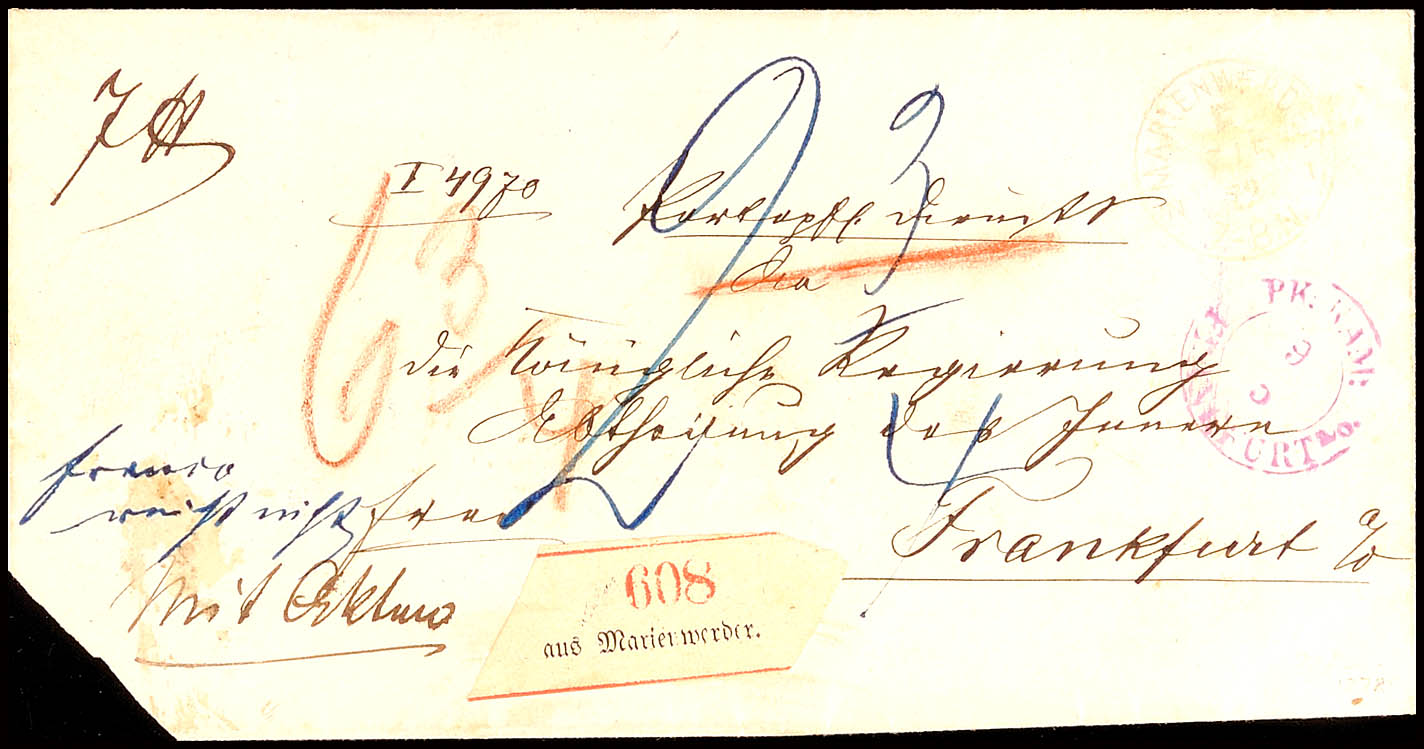 7 ℔
I 4970
Portopfl. Dienst S
An
die Königliche Regierung
Abtheilung des Innern
Frankfurt a/O
franco
nicht
Mit Akten
608
aus Marienwerder.
MARIENWERDER
PK. KAM:
FRANKFURT a.O.
6
3
4